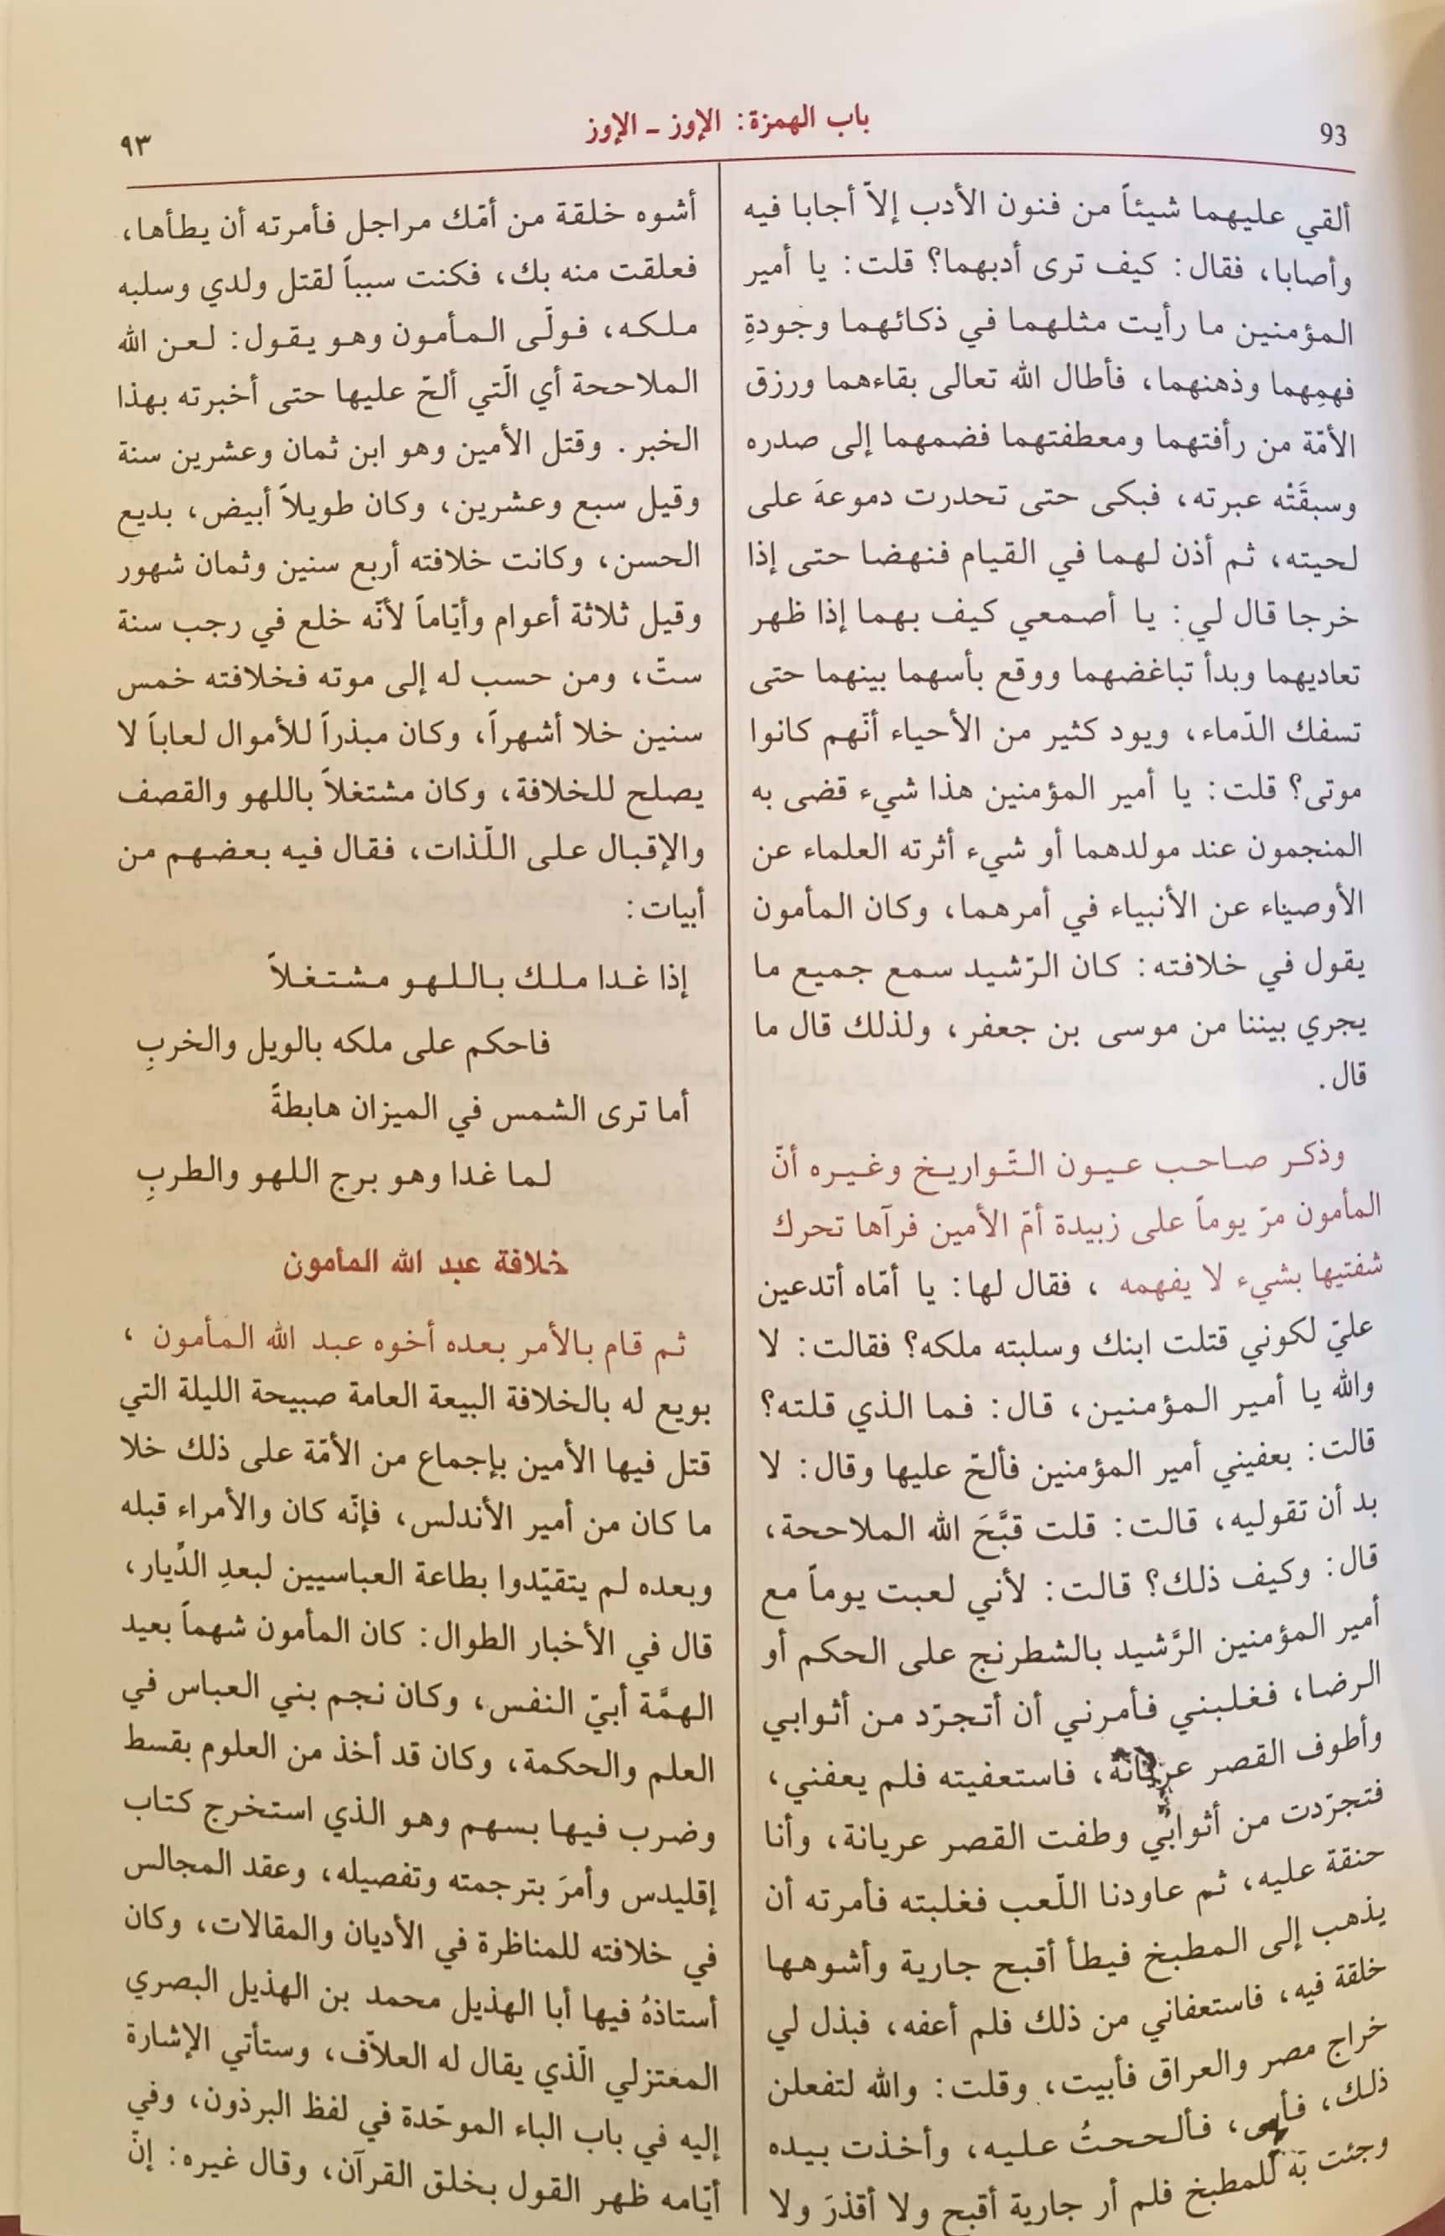 93
باب الهمزة: الإوز ـ الإوز
٩٣
ألقي عليهما شيئاً من فنون الأدب إلاّ أجابا فيه
وأصابا، فقال: كيف ترى أدبهما؟ قلت: يا أمير
المؤمنين ما رأيت مثلهما في ذكائهما وجودةِ
فهمِهما وذهنهما، فأطال الله تعالى بقاءهما ورزق
الأمّة من رأفتهما ومعطفتهما فضمهما إلى صدره
وسبقَتْه عبرته، فبكى حتى تحدرت دموعهَ على
لحيته، ثم أذن لهما في القيام فنهضا حتى إذا
خرجا قال لي: يا أصمعي كيف بهما إذا ظهر
تعاديهما وبدأ تباغضهما ووقع بأسهما بينهما حتى
تسفك الدّماء، ويود كثير من الأحياء أنّهم كانوا
موتى؟ قلت: يا أمير المؤمنين هذا شيء قضى به
المنجمون عند مولدهما أو شيء أثرته العلماء عن
الأوصياء عن الأنبياء في أمرهما، وكان المأمون
يقول في خلافته: كان الرّشيد سمع جميع ما
يجري بيننا من موسى بن جعفر، ولذلك قال ما
قال.
وذكر صاحب عيون التّواريخ وغيره أنّ
المأمون مرّ يوماً على زبيدة أمّ الأمين فرآها تحرك
شفتيها بشيء لا يفهمه ، فقال لها: يا أمّاه أتدعين
عليّ لكوني قتلت ابنك وسلبته ملكه؟ فقالت: لا
والله يا أمير المؤمنين، قال: فما الذي قلته؟
قالت: بعفيني أمير المؤمنين فألحّ عليها وقال: لا
بد أن تقوليه، قالت: قلت قبَّحَ الله الملاححة،
قال: وكيف ذلك؟ قالت: لأني لعبت يوماً مع
أمير المؤمنين الرَّشيد بالشطرنج على الحكم أو
الرضا، فغلبني فأمرني أن أتجرّد من أثوابي
وأطوف القصر عريانة، فاستعفيته فلم يعفني،
فتجرّدت من أثوابي وطفت القصر عريانة، وأنا
حنقة عليه، ثم عاودنا اللّعب فغلبته فأمرته أن
يذهب إلى المطبخ فيطأ أقبح جارية وأشوهها
خلقة فيه، فاستعفاني من ذلك فلم أعفه، فبذل لي
خراج مصر والعراق فأبيت، وقلت: والله لتفعلن
ذلك، فأبى، فألححتُ عليه، وأخذت بيده
وجئت به للمطبخ فلم أر جارية أقبح ولا أقذرَ ولا
أشوه خلقة من أمّك مراجل فأمرته أن يطأها،
فعلقت منه بك، فكنت سبباً لقتل ولدي وسلبه
ملكه، فولّى المأمون وهو يقول: لعن الله
الملاححة أي الّتي ألحّ عليها حتى أخبرته بهذا
الخبر. وقتل الأمين وهو ابن ثمان وعشرين سنة
وقيل سبع وعشرين، وكان طويلاً أبيض، بديع
الحسن، وكانت خلافته أربع سنين وثمان شهور
وقيل ثلاثة أعوام وأيّاماً لأنّه خلع في رجب سنة
ستّ، ومن حسب له إلى موته فخلافته خمس
سنين خلا أشهراً، وكان مبذراً للأموال لعاباً لا
يصلح للخلافة، وكان مشتغلاً باللهو والقصف
والإقبال على اللّذات، فقال فيه بعضهم من
أبيات:
إذا غدا ملك باللهو مشتغلاً
فاحكم على ملكه بالويل والخربِ
أما ترى الشمس في الميزان هابطةً
لما غدا وهو برج اللهو والطربِ
خلافة عبد الله المأمون
ثم قام بالأمر بعده أخوه عبد الله المأمون ،
بويع له بالخلافة البيعة العامة صبيحة الليلة التي
قتل فيها الأمين بإجماع من الأمّة على ذلك خلا
ما كان من أمير الأندلس، فإنّه كان والأمراء قبله
وبعده لم يتقيّدوا بطاعة العباسيين لبعدِ الدِّيار،
قال في الأخبار الطوال: كان المأمون شهماً بعيد
الهمَّة أبيّ النفس، وكان نجم بني العباس في
العلم والحكمة، وكان قد أخذ من العلوم بقسط
وضرب فيها بسهم وهو الذي استخرج كتاب
إقليدس وأمرَ بترجمته وتفصيله، وعقد المجالس
في خلافته للمناظرة في الأديان والمقالات، وكان
أستاذهُ فيها أبا الهذيل محمد بن الهذيل البصري
المعتزلي الّذي يقال له العلاّف، وستأتي الإشارة
إليه في باب الباء الموحّدة في لفظ البرذون، وفي
أيّامه ظهر القول بخلق القرآن، وقال غيره: إنّ